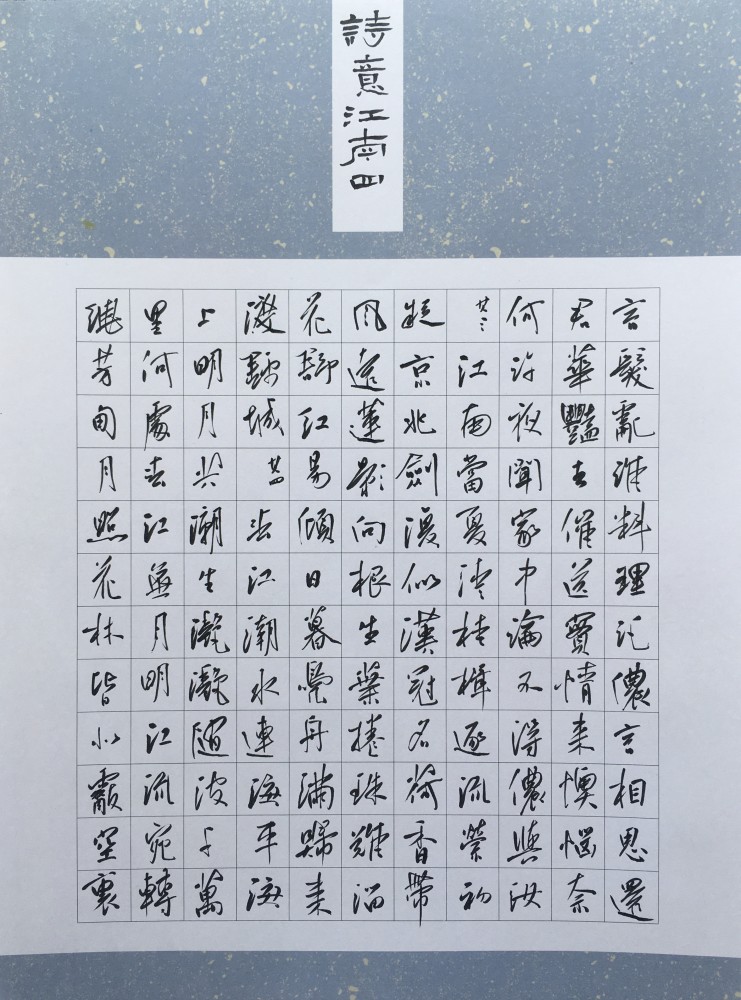 詩意江南四
言髮亂誰料理託儂言相思還
君華豔去催送實情來懊惱奈
何許夜聞家中論不得儂與汝
廿三江南當夏清桂楫逐流縈初
疑京兆劍復似漢冠名荷香帶
風遠蓮影向根生葉捲珠難溜
花舒紅易傾日暮鳧舟滿歸來
渡錦城廿四春江潮水連海平海
上明月共潮生灩灩隨波千萬
里何處春江無月明江流宛轉
繞芳甸月照花林皆似霰空裏